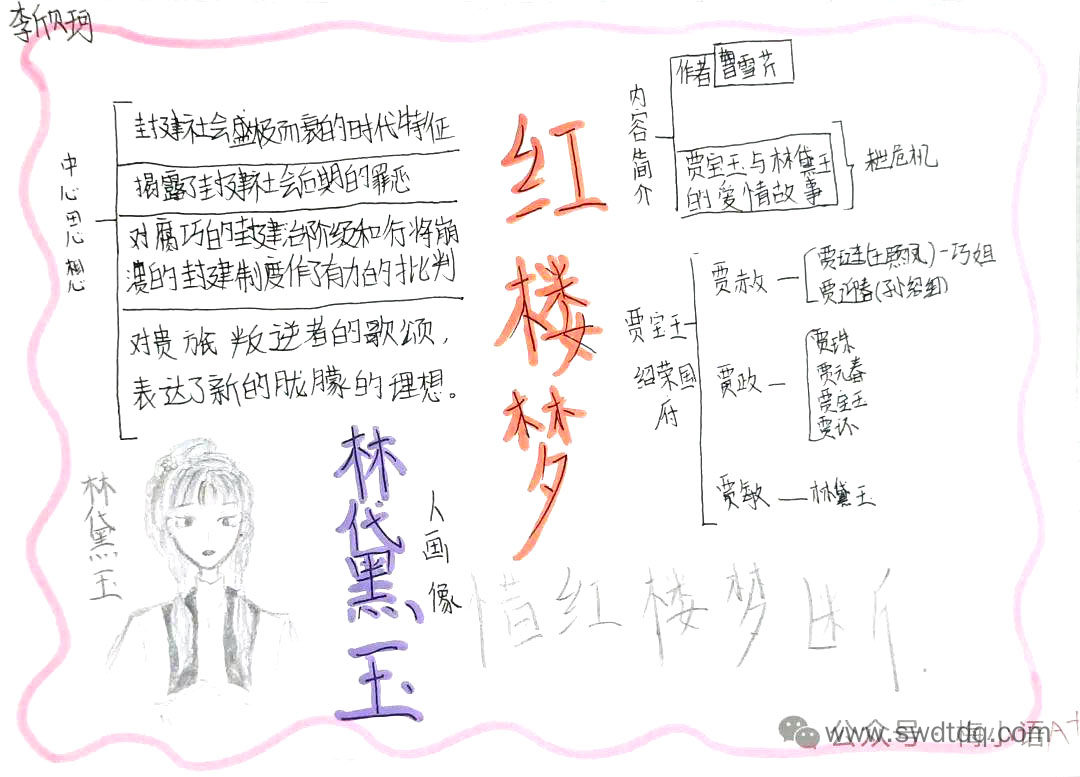 李欣珂
中心思想
封建社会盛极而衰的时代特征
揭露了封建社会后期的罪恶
对腐巧的封建治阶级和行将崩
溃的封建制度作了有力的批判
对贵族叛逆者的歌颂,
表达了新的胧朦的理想。
红楼梦
内容简介
作者曹雪芹
贾宝玉与林黛玉
的爱情故事
危机
贾宝玉
绍荣国
府
贾赦
贾琏(王熙凤)-巧姐
贾迎春(孙绍组)
贾政
贾珠
贾元春
贾宝玉
贾环
贾敏
林黛玉
林黛玉
林黛玉
人画像
惜红楼梦
公众号·梅小语
www.swdtdq.com
A+